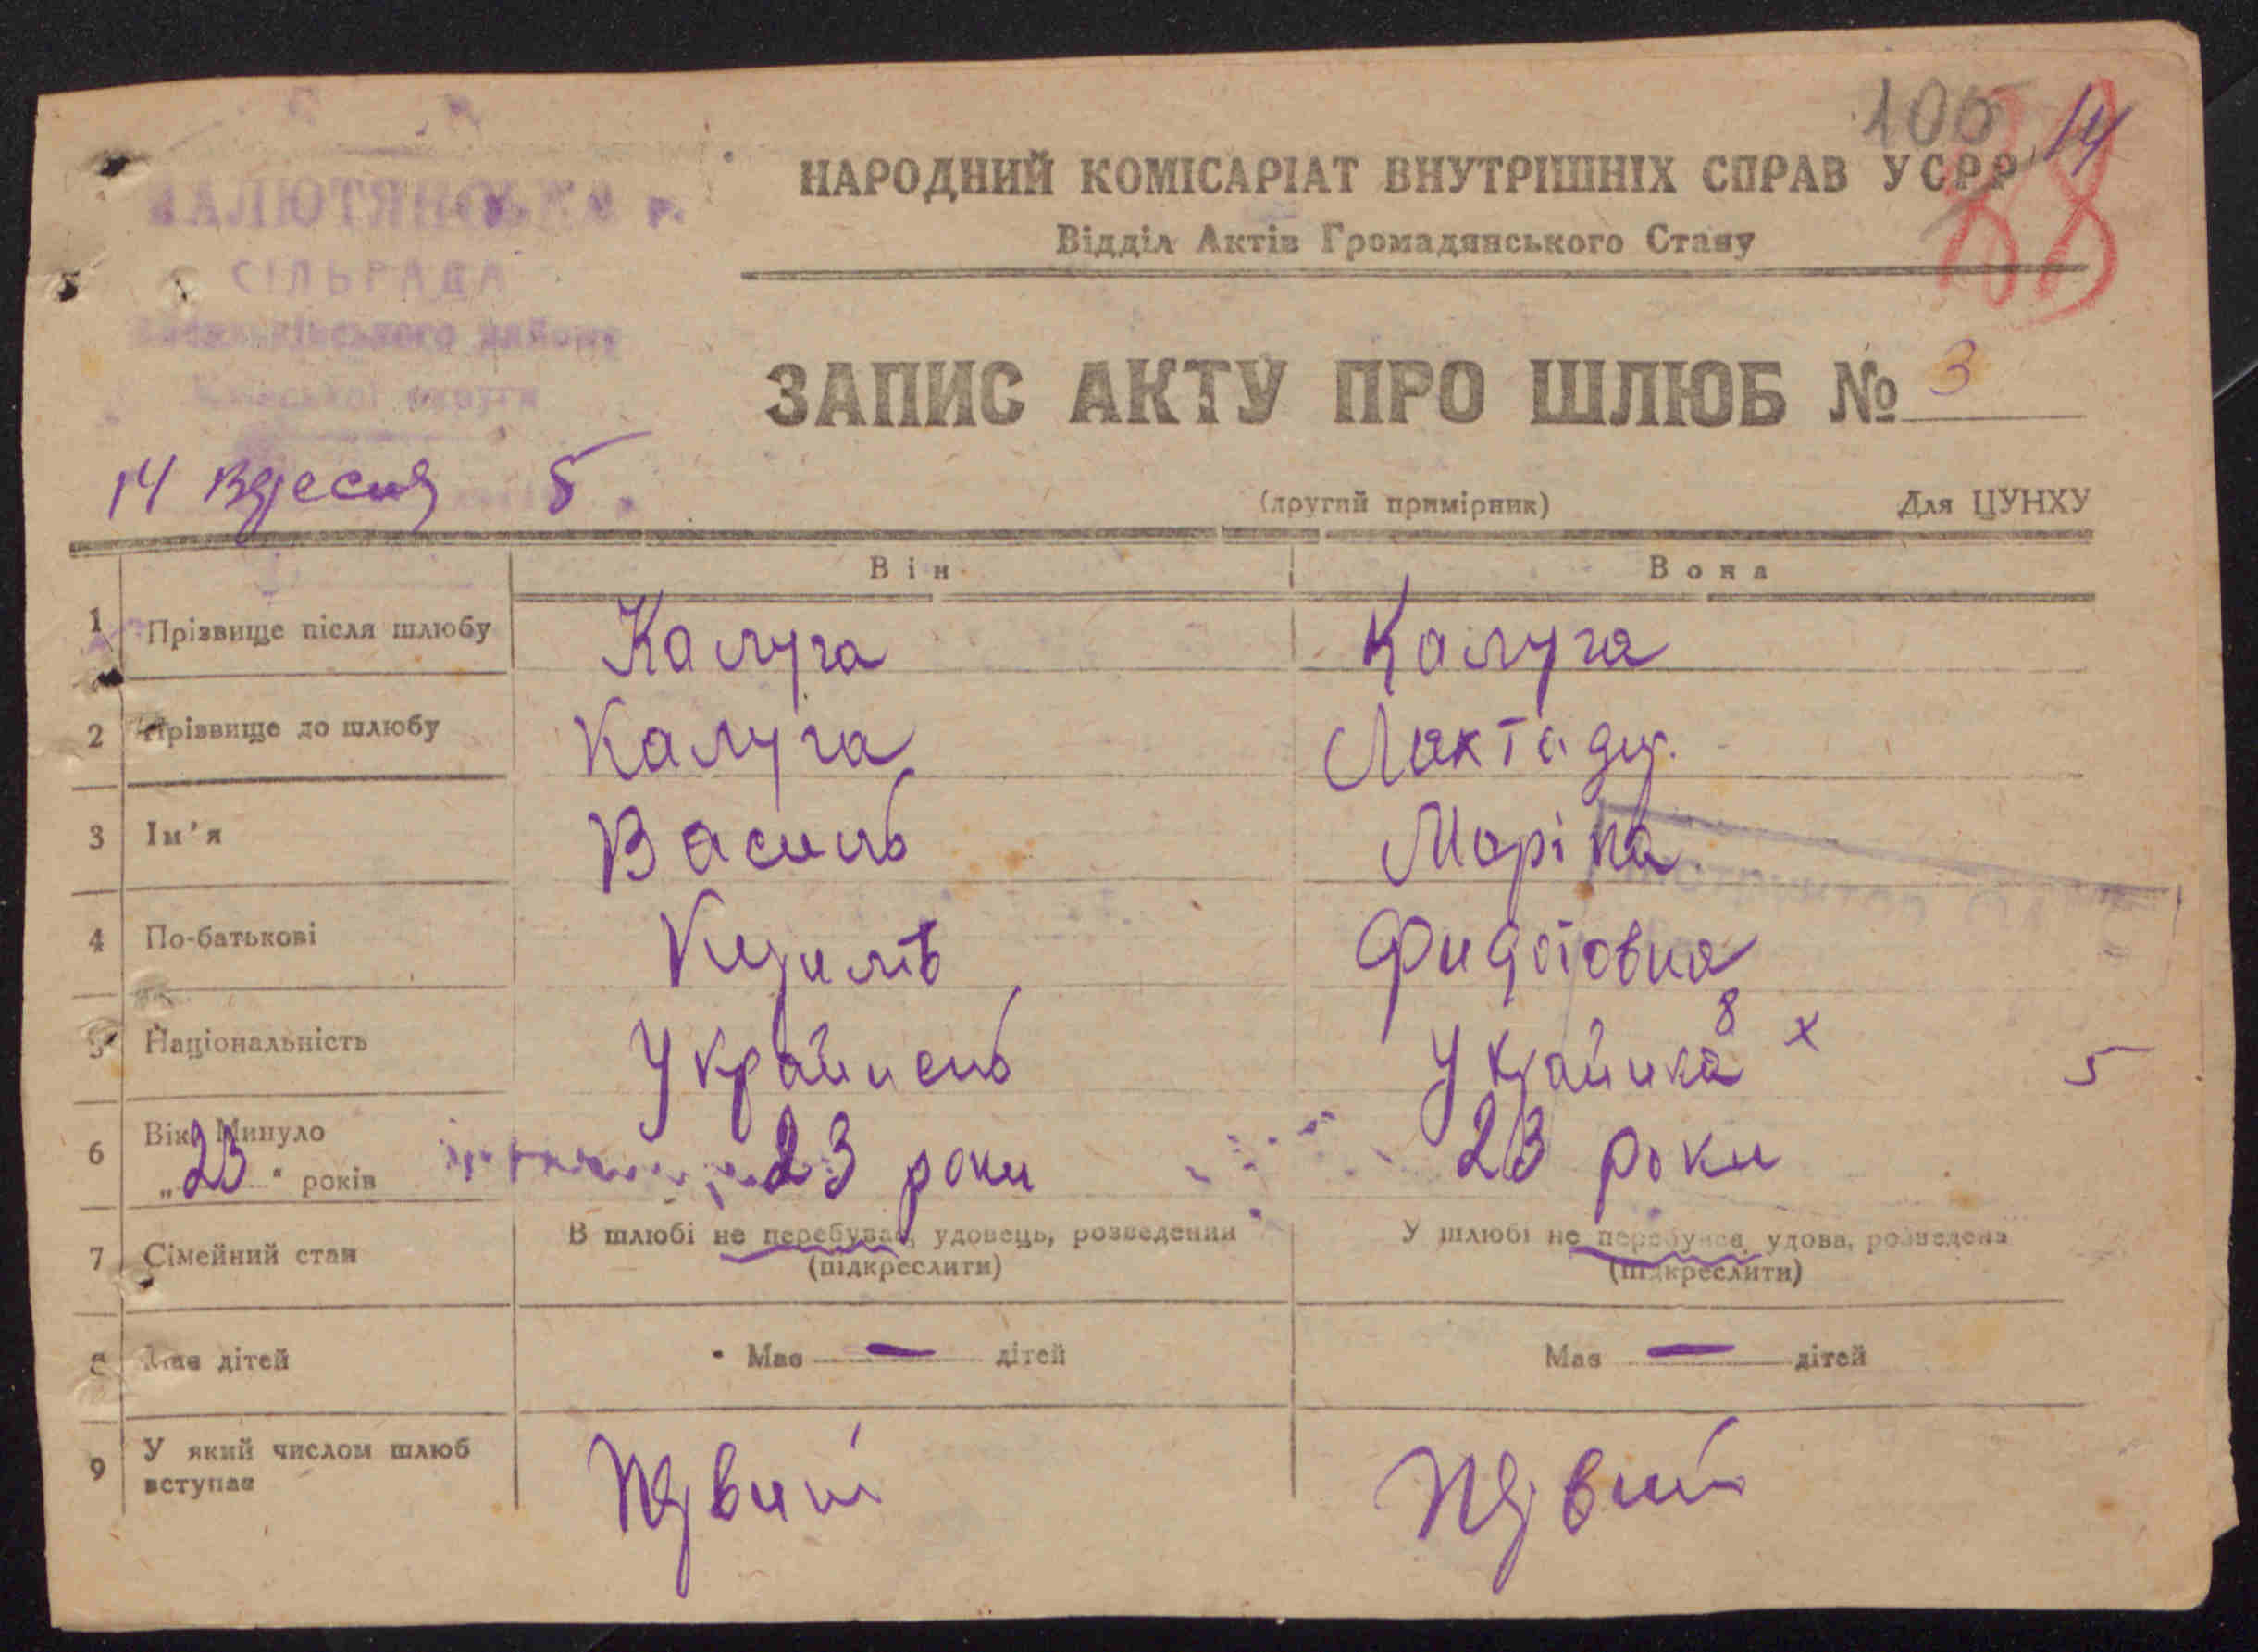 105 14
88
НАРОДНИЙ КОМІСАРІАТ ВНУТРІШНІХ СПРАВ УСРР
Відділ Актів Громадянського Стану
СІЛЬРАДА
ЗАПИС АКТУ ПРО ШЛЮБ № 3
14 Вересня 5
(другий примірник) Для ЦУНХУ
Він Вона
1 Прізвище після шлюбу Калуга Калуга
2 Прізвище до шлюбу Калуга
3 Ім'я Василь Маріна
4 По-батькові Фидотовна
5 Національність Українець Українка 8 x 5
6 Вік. Минуло „23“ років 23 роки 23 роки
7 Сімейний стан В шлюбі не перебував, удовець, розведений У шлюбі не перебувала, удова, розведена
(підкреслити) (підкреслити)
8 Має дітей Має — дітей Має — дітей
9 У який числом шлюб вступає Первий Первий